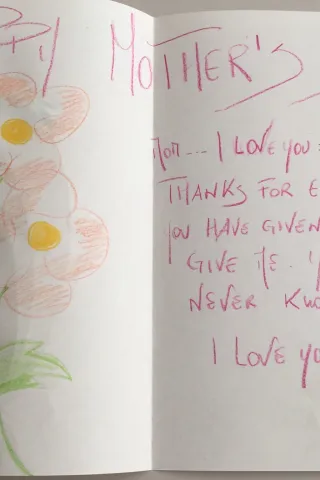 MOTHER'S
MOM... I LOVE YOU
THANKS FOR E
YOU HAVE GIVEN
GIVE ME.
NEVER KNO
I LOVE YO